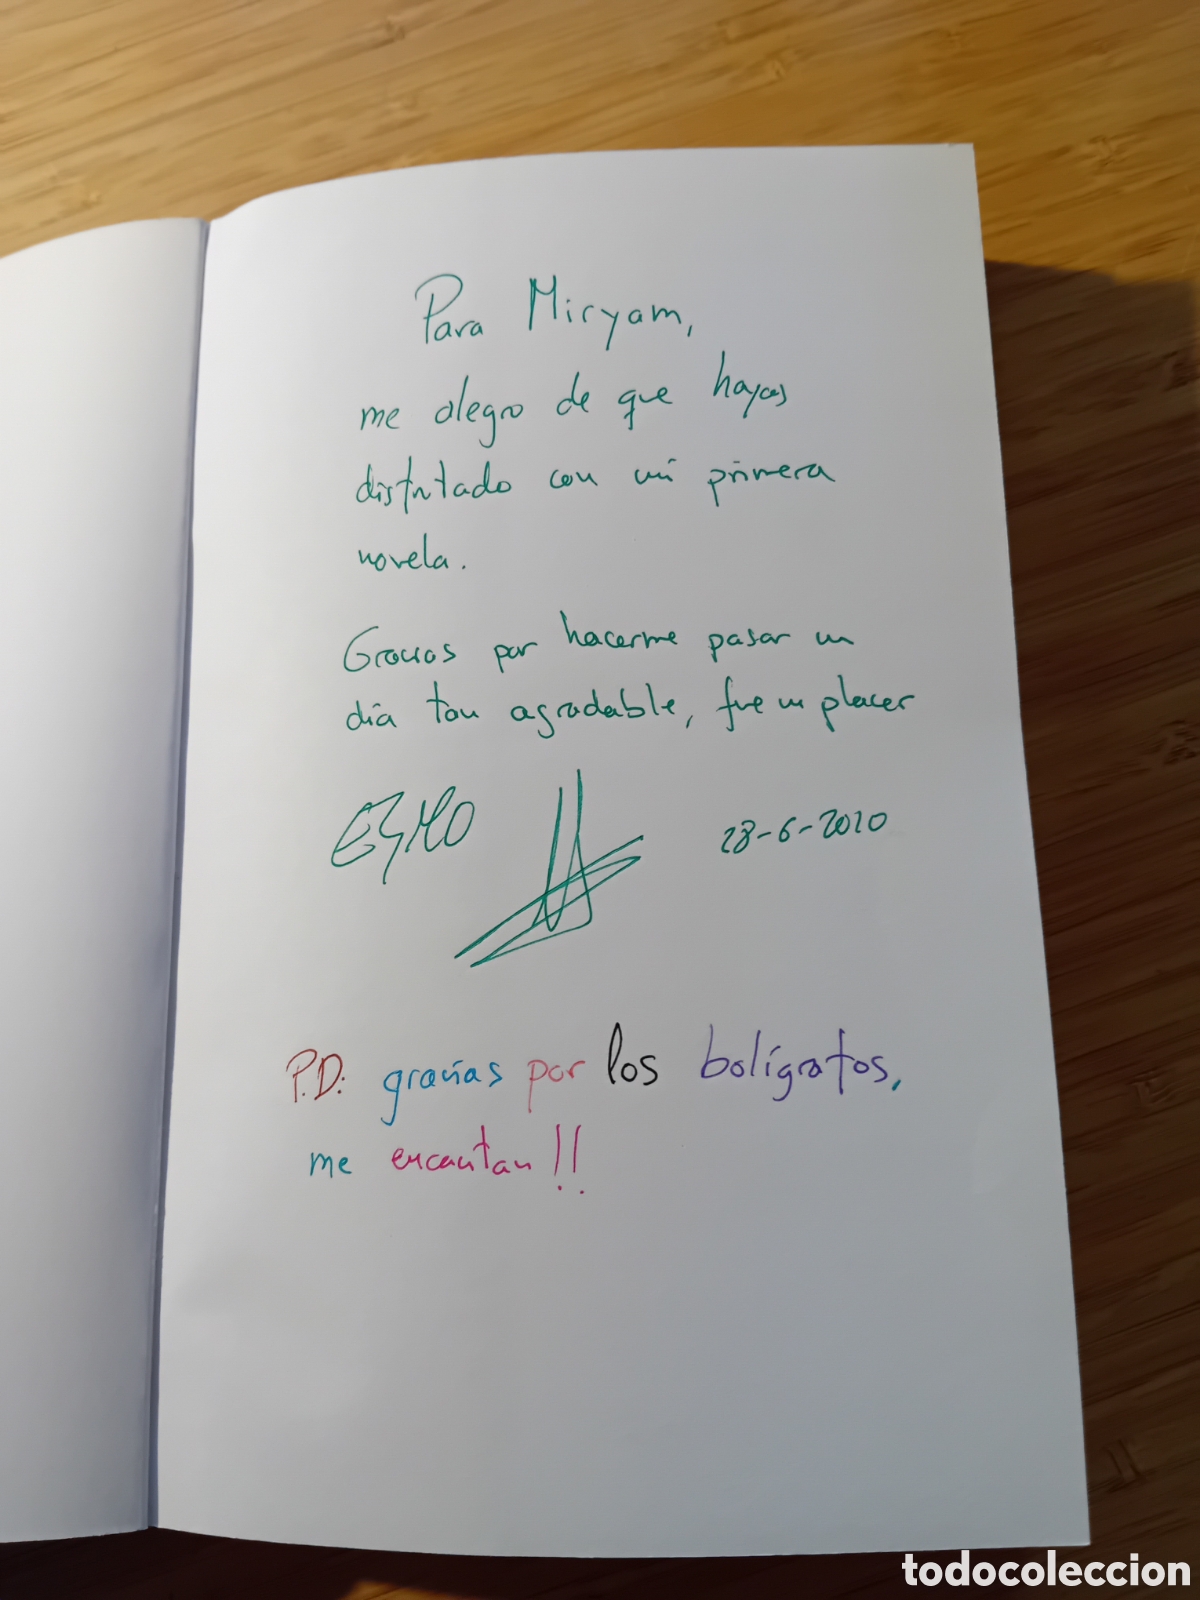 Para Miryam,
me alegro de que hayas
disfrutado con mi primera
novela.
Gracias por hacerme pasar un
día tan agradable, fue un placer
28-6-2020
P.D: gracias por los bolígrafos,
me encantan!!
todocoleccion